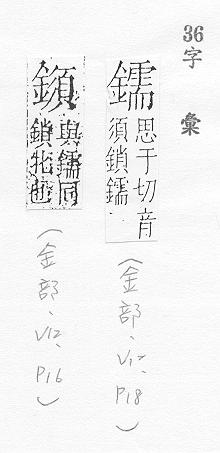 36
字彙
鑐 思于切音
須鎖鑐
(金部、V12、
P18)
鎭 與鑐同
鎖牝也
(金部、V12、
P16)